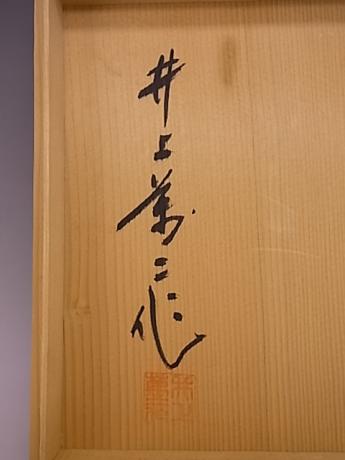 井上萬二作